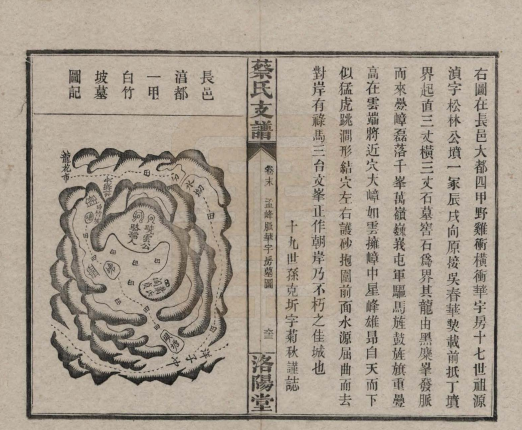 右圖在長邑大都四甲野雞衝橫衝華字房十七世祖源
滇字松林公墳一冢辰戌向原接吳春華契載前抵丁墳
界起直三丈橫三丈石墓窨石為界其龍由黑麋峯發脈
而來疊嶂磊落千峯萬嶺巍峩屯軍驅馬旌鼓旌旗重疊
高在雲端將近穴大嶂如雲擁嶂中星峰雄昻自天而下
似猛虎跳澗形結穴左右護砂抱圍前面水源屈曲而去
對岸有祿馬三台文峯正作朝岸乃不朽之佳城也
十九世孫克圻字菊秋謹誌
蔡氏支譜
卷末
孟峰殷華字房墓圖
洛陽堂
長邑
滃都
一甲
白竹
坡墓
圖記
龍花市
田
田
田
田